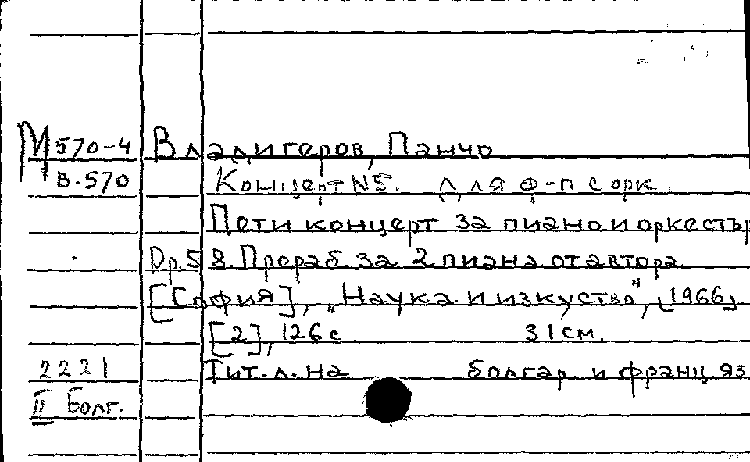 М 570-4 Владигеров, Панчо
В.570 Концерт №5. для ф-п с орк.
Пети концерт за пиано и оркестър
Ор.58. Прораб. за 2 пиана от автора.
[София], "Наука и изкуство", [1966]
[2], 126 с 31 см.
2221 Тит. л. на болгар. и франц. яз
II Болг.